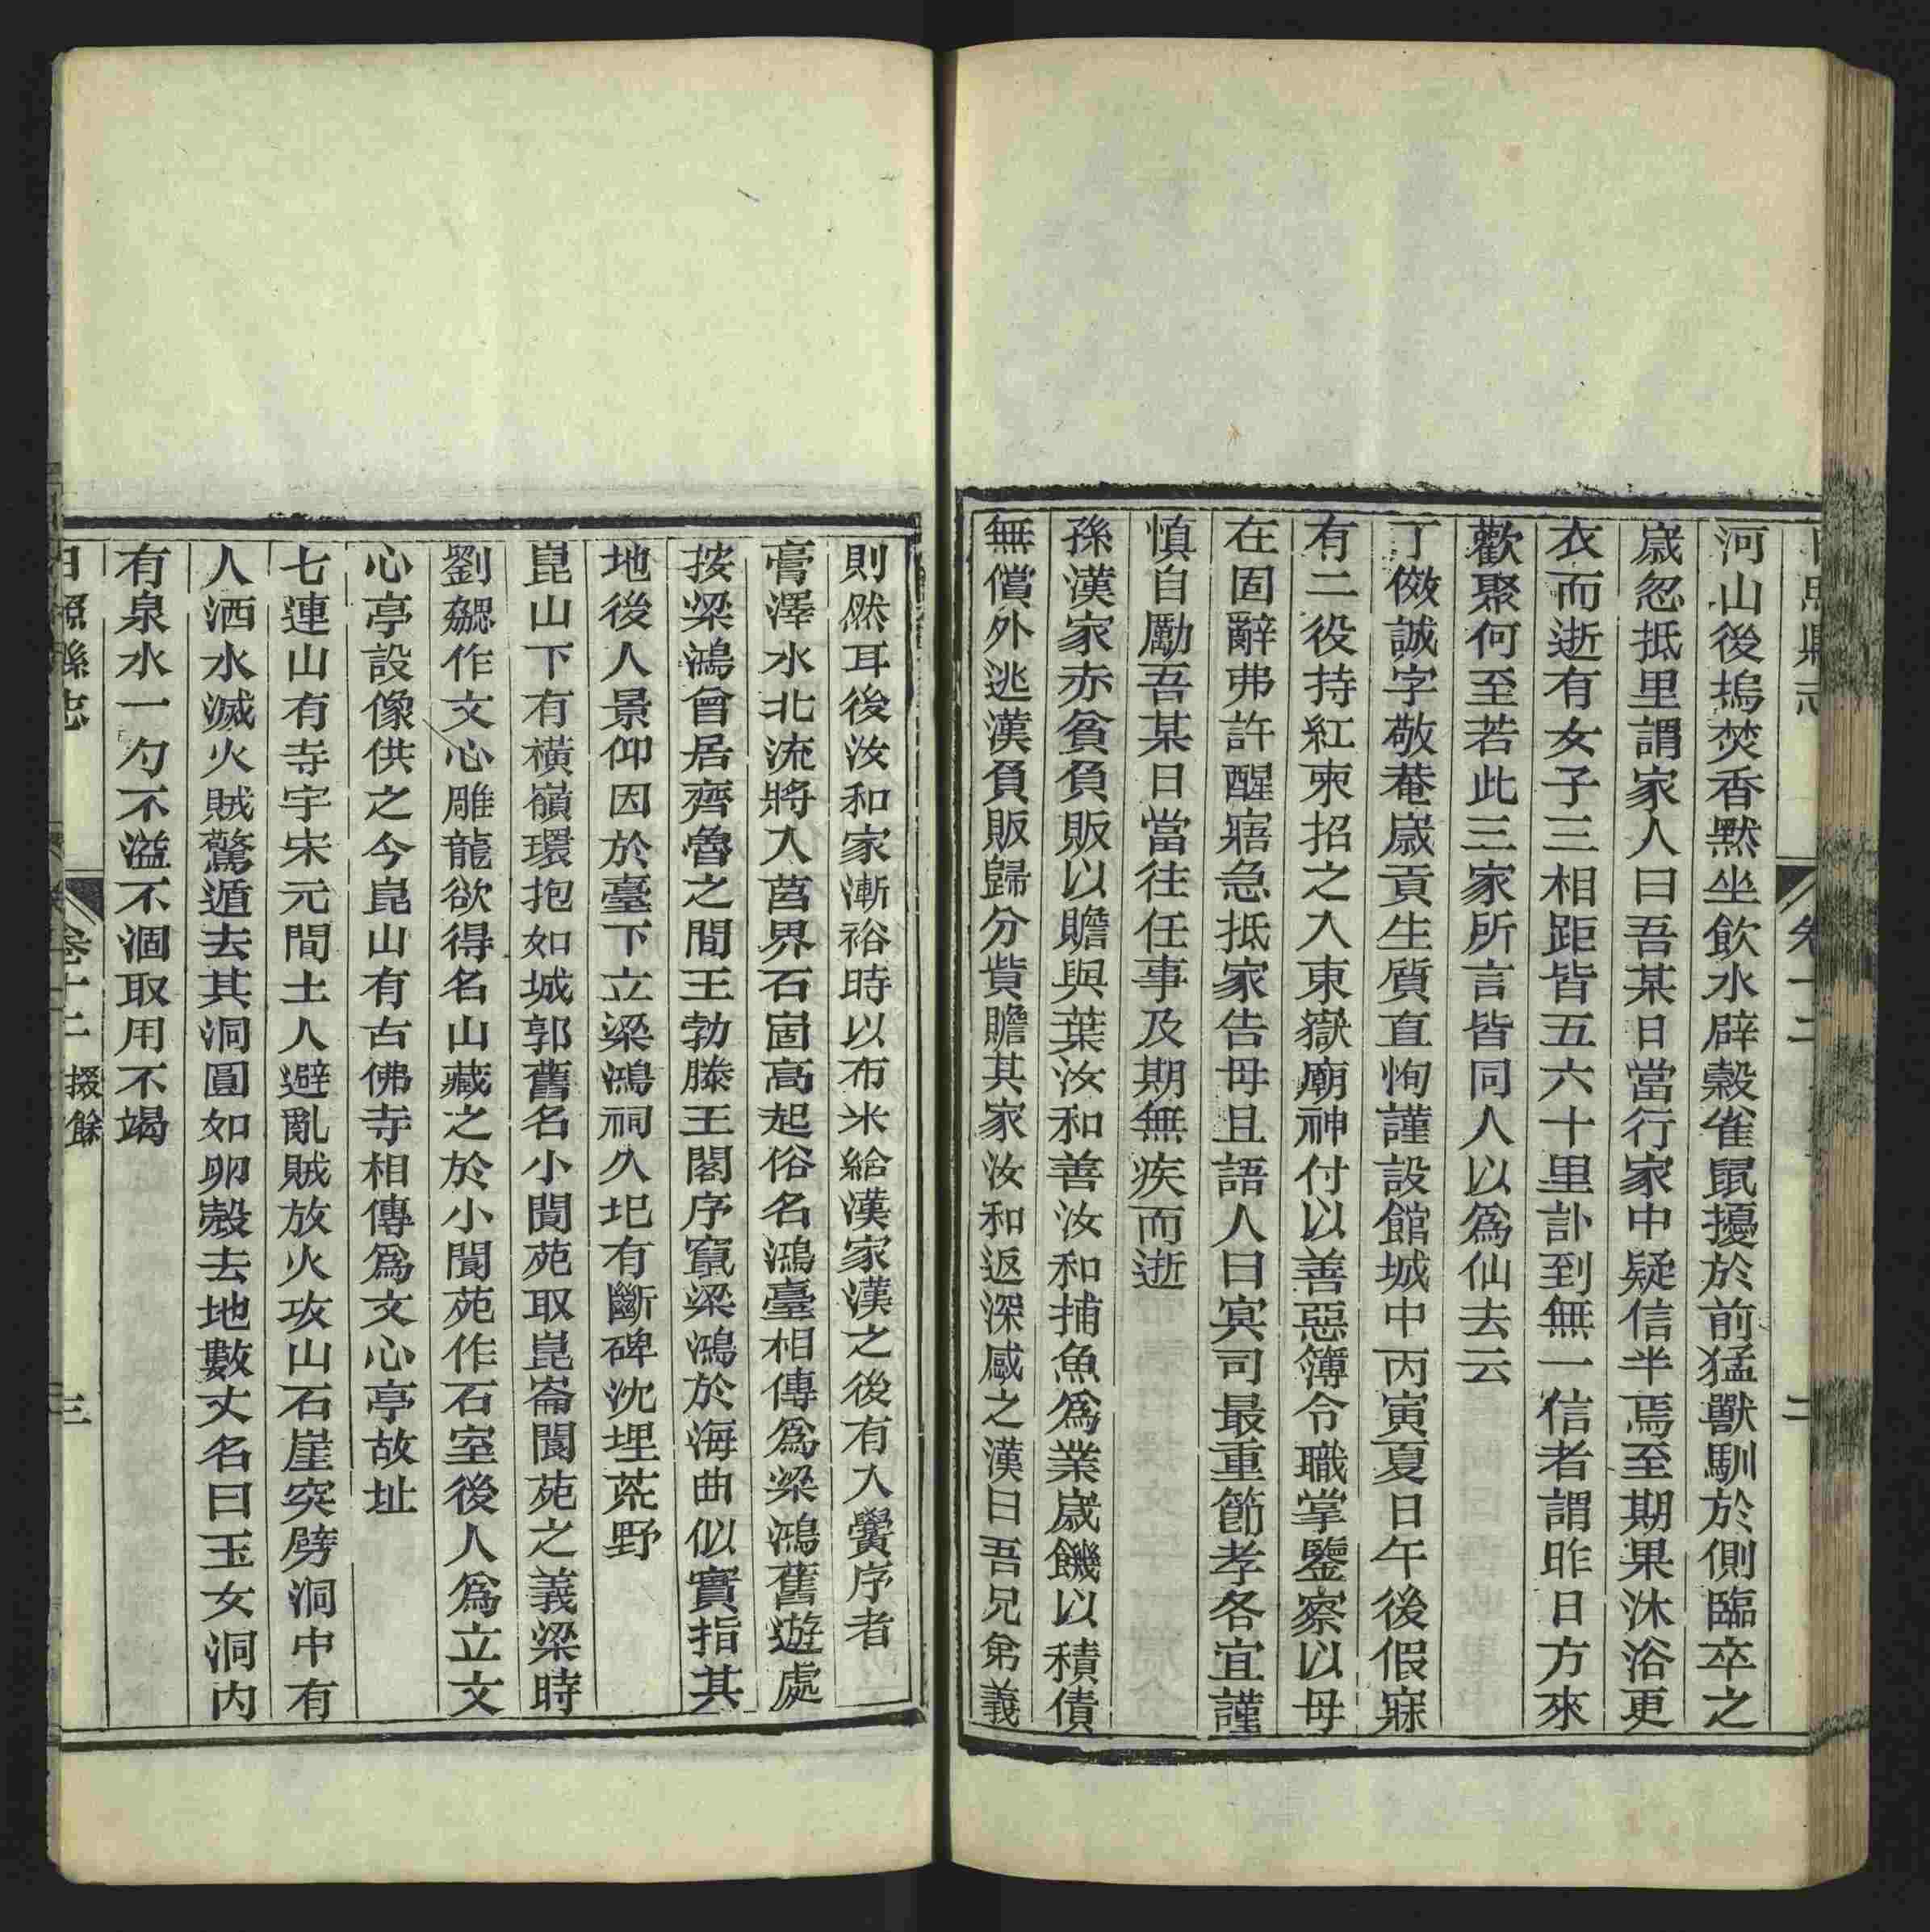 河山後塢焚香黙坐飲水辟榖雀鼠擾於前猛獸馴於側臨卒之
歲忽抵里謂家人曰吾某日當行家中疑信半焉至期果沐浴更
衣而逝有女子三相距皆五六十里訃到無一信者謂昨日方來
歡聚何至若此三家所言皆同人以爲仙去云
丁儆誠字敬菴歲貢生質直恂謹設館城中丙寅夏日午後假寐
有二役持紅柬招之入東嶽廟神付以善惡簿令職掌鑒察以母
在固辭弗許醒寤急抵家告母且語人曰冥司最重節孝各宜謹
慎自勵吾某日當往任事及期無疾而逝
孫漢家赤貧負販以贍與葉汝和善汝和捕魚爲業歲饑以積債
無償外逃漢負販歸分貲贍其家汝和返深感之漢曰吾兄弟義
則然耳後汝和家漸裕時以布米給漢家漢之後有入黌序者
膏澤水北流將入莒界石崮高起俗名鴻臺相傳爲梁鴻舊遊處
按梁鴻曾居齊魯之間王勃滕王閣序竄梁鴻於海曲似實指其
地後人景仰因於臺下立梁鴻祠久圮有斷碑沈埋荒野
崑山下有橫嶺環抱如城郭舊名小閬苑取崑崙閬苑之義梁時
劉勰作文心雕龍欲得名山藏之於小閬苑作石室後人爲立文
心亭設像供之今崑山有古佛寺相傳爲文心亭故址
七連山有寺宇宋元間土人避亂賊放火攻山石崖突劈洞中有
人洒水滅火賊驚遁去其洞圓如卵殼去地數丈名曰玉女洞内
有泉水一勺不溢不涸取用不竭
日照縣志 卷十二 掇餘 三